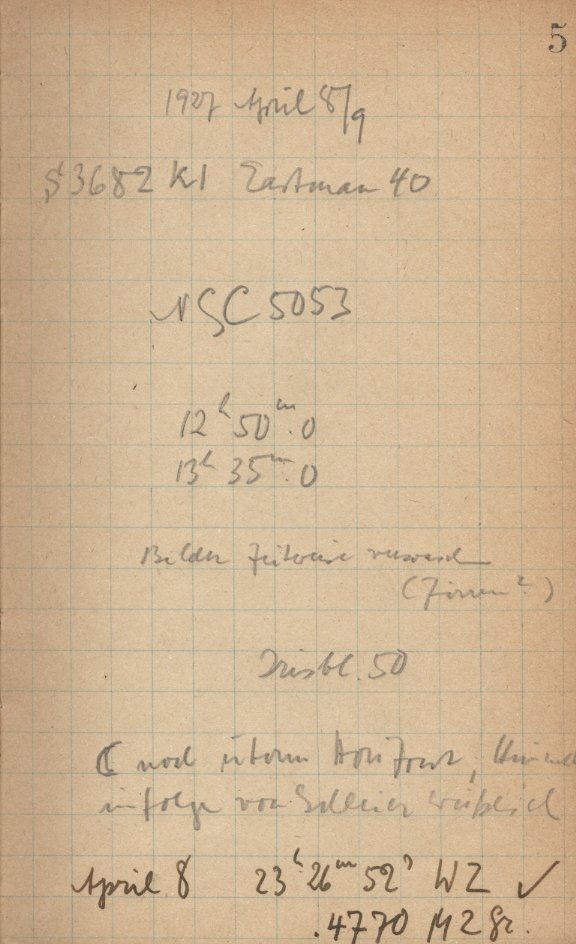 5
1927 April 8/9
S3682 Kl Eastman 40
NGC 5053
12ʰ 50ᵐ.0
13ʰ 35ᵐ.0
Bilder zeitweise verwasch
(Zirren?)
Irisbl. 50
☾ noch überm Horizont, Himmel
infolge von Schleier weißlich
April 8 23ʰ 26ᵐ 52ˢ WZ ✓
.4770 MZGr.